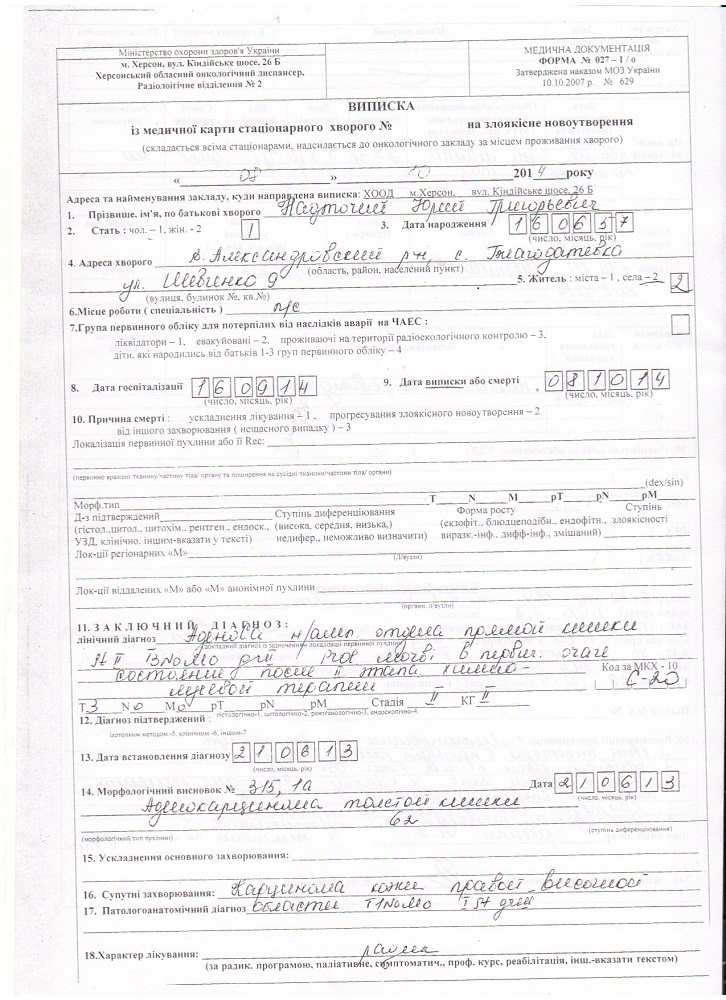 Міністерство охорони здоров'я України
м. Херсон, вул. Кіндійське шосе, 26 Б
Херсонський обласний онкологічний диспансер,
Радіологічне відділення № 2
МЕДИЧНА ДОКУМЕНТАЦІЯ
ФОРМА № 027 – 1 / о
Затверджена наказом МОЗ України
10.10.2007 р. № 629
ВИПИСКА
із медичної карти стаціонарного хворого № на злоякісне новоутворення
(складається всіма стаціонарами, надсилається до онкологічного закладу за місцем проживання хворого)
« 08 » 10 2014 року
Адреса та найменування закладу, куди направлена виписка: ХООД м.Херсон, вул. Кіндійське шосе, 26 Б
1. Прізвище, ім'я, по батькові хворого Надточий Юрий Григорьевич
2. Стать : чол. – 1, жін. - 2 1 3. Дата народження 160657
(число, місяць, рік)
4. Адреса хворого В. Александровский р-н, с. Благодатевка
(область, район, населений пункт)
ул. Шевченко 9 5. Житель : міста – 1 , села – 2 2
(вулиця, будинок №, кв.№)
6.Місце роботи ( спеціальність ) н/с
7.Група первинного обліку для потерпілих від наслідків аварії на ЧАЕС :
ліквідатори – 1, евакуйовані – 2, проживаючі на території радіоекологічного контролю – 3,
діти, які народились від батьків 1-3 груп первинного обліку – 4
8. Дата госпіталізації 160914 9. Дата виписки або смерті 081014
(число, місяць, рік) (число, місяць, рік)
10. Причина смерті : ускладнення лікування – 1 , прогресування злоякісного новоутворення – 2
від іншого захворювання ( нещасного випадку ) – 3
Локалізація первинної пухлини або її Rec:
(первинно вражену тканину/частину тіла/ органу та поширення на сусідні тканини/частини тіла/ органи)
(dex/sin)
Морф.тип T N M pT pN pM
Д-з підтверджений Ступінь диференціювання Форма росту Ступінь
(гістол.,цитол., цитохім., рентген., ендоск., (висока, середня, низька,) (екзофіт., блюдцеподібн., ендофітн., злоякісності
УЗД, клінічно, іншим-вказати у тексті) недифер., неможливо визначити) виразк.-інф., дифф-інф., змішаний)
Лок-ції регіонарних «М»
(Л/вузли)
Лок-ції віддалених «М» або «М» анонімної пухлини
(органи, л/вузли)
11. ЗАКЛЮЧНИЙ ДІАГНОЗ :
клінічний діагноз н/амп. отдела прямой кишки
(докладний діагноз із зазначенням локалізації первинної пухлини)
St II T3N0M0 в первич. очаге
состояние после II этапа химио- Код за МКХ - 10
лучевой терапии С-20
T 3 N 0 M 0 pT pN pM Стадія II КГ II
12. Діагноз підтверджений : гістологічно-1, цитологічно-2, рентгенологічно-3, ендоскопічно-4,
ізотопним методом -5, клінічним -6, іншим-7
13. Дата встановлення діагнозу 210613
(число, місяць, рік)
14. Морфологічний висновок № 315, 1а Дата 210613
(число, місяць, рік)
Аденокарцинома толстой кишки
G2
(морфологічний тип пухлини) (ступінь диференціювання)
15. Ускладнення основного захворювання:
16. Супутні захворювання: Карцинома кожи правой височной
17. Патологоанатомічний діагноз области T1N0M0 I St
18.Характер лікування:
(за радик. програмою, паліативне, симптоматич., проф. курс, реабілітація, інш.-вказати текстом)